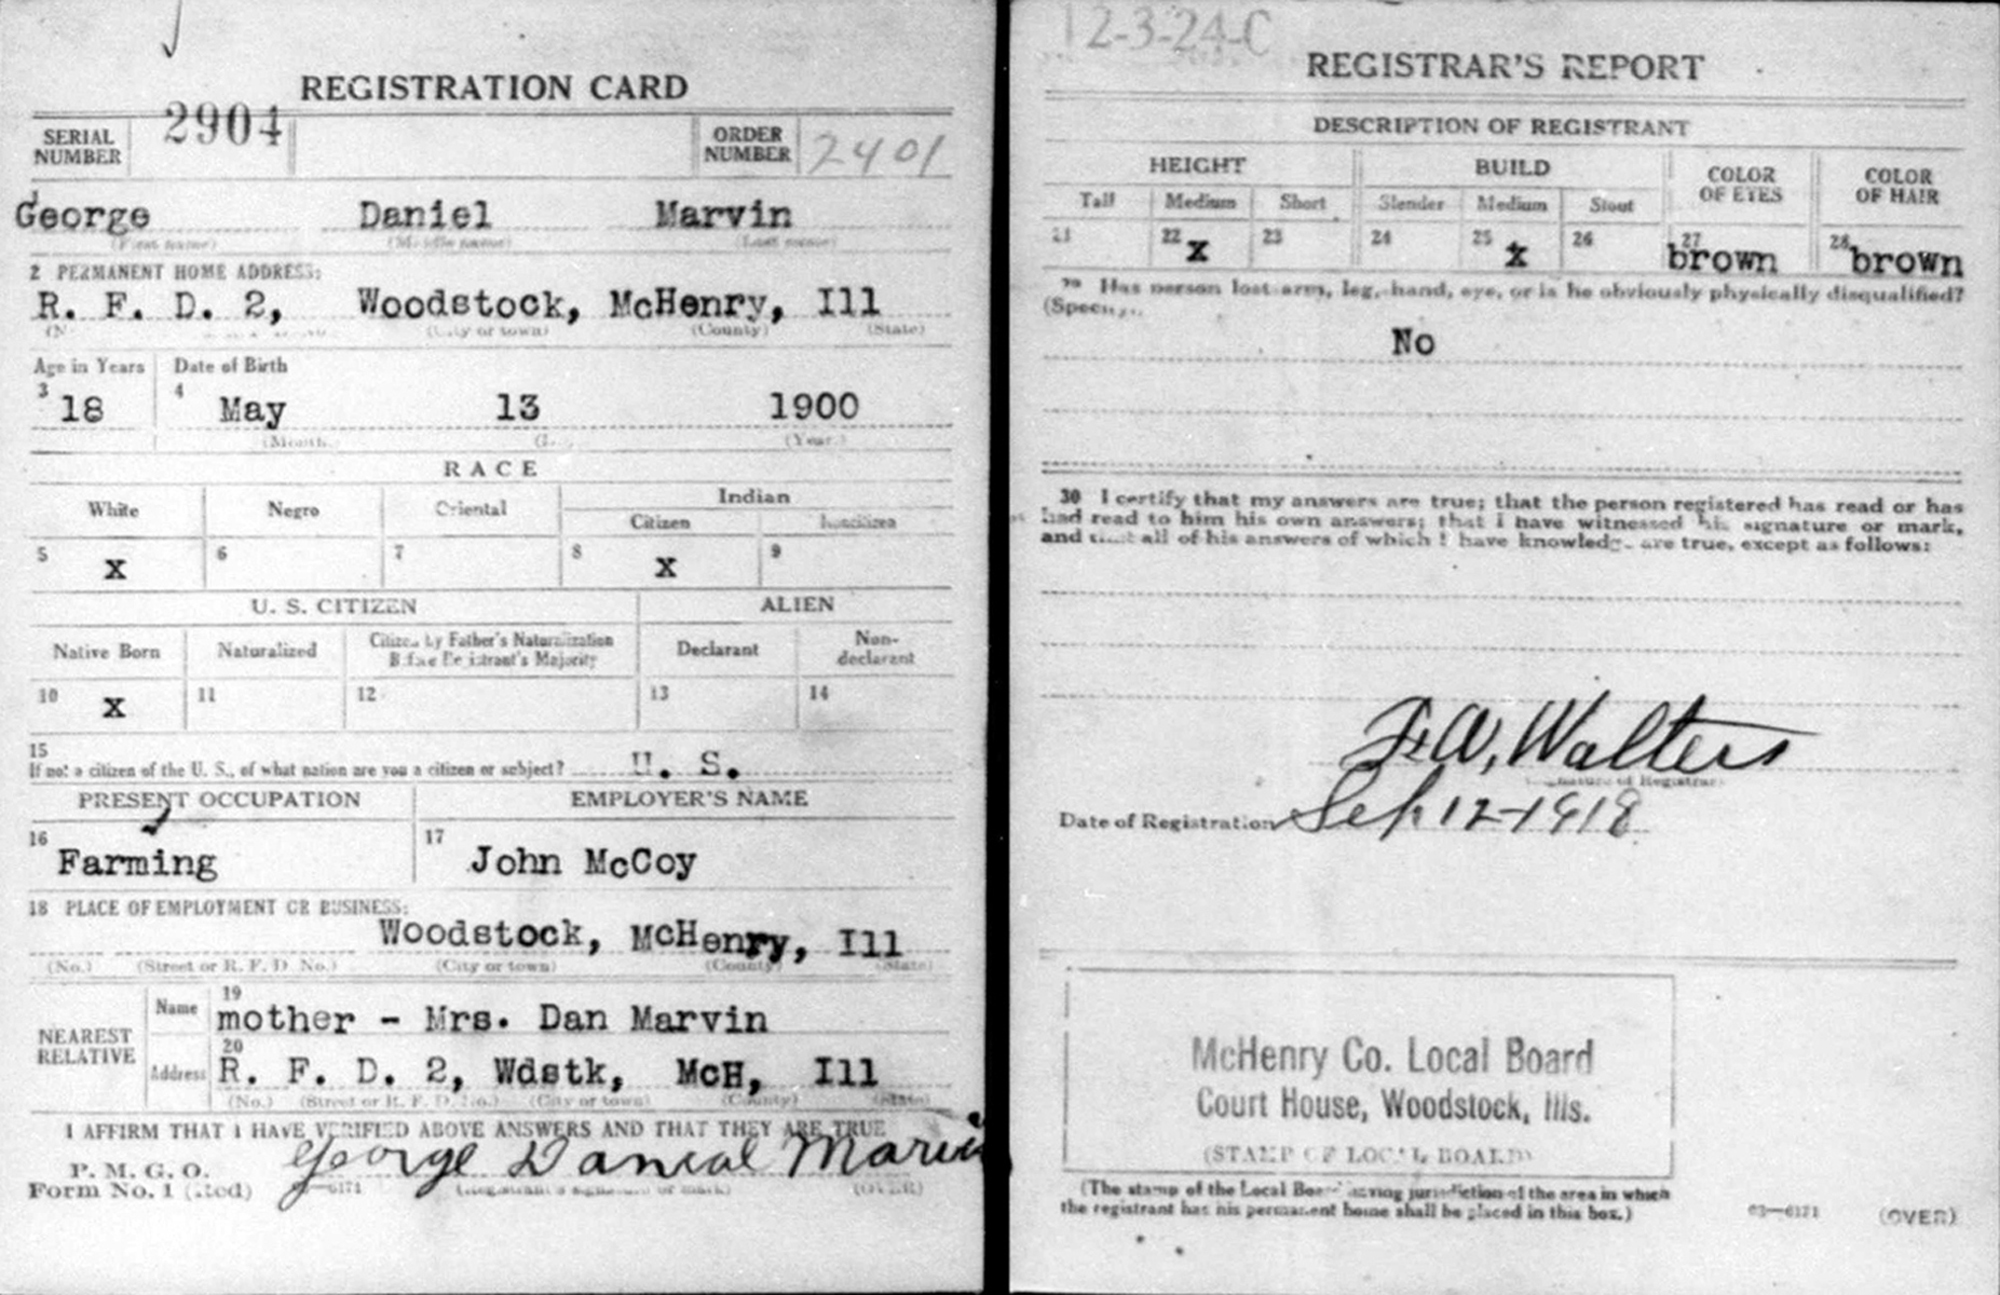 REGISTRATION CARD
SERIAL NUMBER 2904 ORDER NUMBER 2401
George Daniel Marvin
(First name) (Middle name) (Last name)
2 PERMANENT HOME ADDRESS:
R. F. D. 2, Woodstock, McHenry, Ill
(City or town) (County) (State)
Age in Years Date of Birth
3 18 4 May 13 1900
(Month) (Year)
RACE
White Negro Oriental Indian
Citizen Noncitizen
5 x 6 7 8 x 9
U. S. CITIZEN ALIEN
Native Born Naturalized Citizen by Father's Naturalization Before Registrant's Majority Declarant Non-declarant
10 x 11 12 13 14
15
If not a citizen of the U. S., of what nation are you a citizen or subject? U. S.
PRESENT OCCUPATION EMPLOYER'S NAME
16 Farming 17 John McCoy
18 PLACE OF EMPLOYMENT OR BUSINESS:
Woodstock, McHenry, Ill
(No.) (Street or R. F. D. No.) (City or town) (County) (State)
NEAREST RELATIVE
Name 19 mother - Mrs. Dan Marvin
Address 20 R. F. D. 2, Wdstk, McH, Ill
(No.) (Street or R. F. D. No.) (City or town) (County) (State)
I AFFIRM THAT I HAVE VERIFIED ABOVE ANSWERS AND THAT THEY ARE TRUE
P. M. G. O.
Form No. 1 (Red) George Danial Marvin
(Registrant's signature or mark) (OVER)
12-3-24-C
REGISTRAR'S REPORT
DESCRIPTION OF REGISTRANT
HEIGHT BUILD COLOR OF EYES COLOR OF HAIR
Tall Medium Short Slender Medium Stout
21 22 x 23 24 25 x 26 27 brown 28 brown
29 Has person lost arm, leg, hand, eye, or is he obviously physically disqualified?
(Specify.)
No
30 I certify that my answers are true; that the person registered has read or has
had read to him his own answers; that I have witnessed his signature or mark,
and that all of his answers of which I have knowledge are true, except as follows:
F. W. Walters
(Signature of Registrar)
Date of Registration Sep 12-1918
McHenry Co. Local Board
Court House, Woodstock, Ills.
(STAMP OF LOCAL BOARD)
(The stamp of the Local Board having jurisdiction of the area in which
the registrant has his permanent home shall be placed in this box.)
03—6171 (OVER)